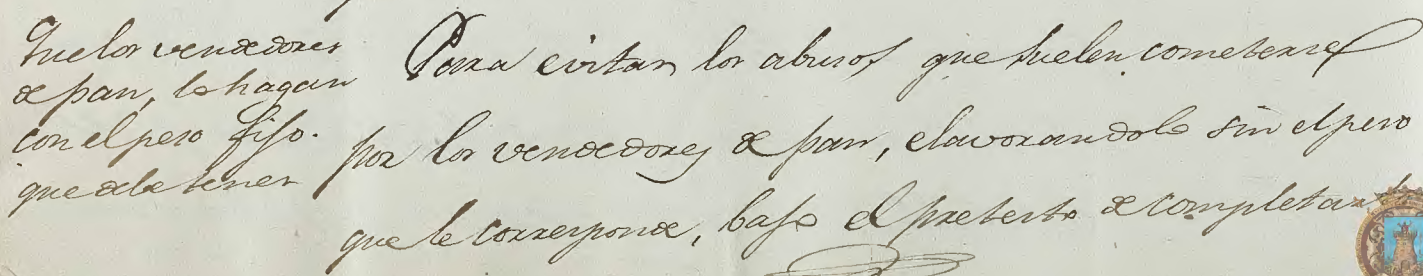 Que los vendedores
de pan, lo hagan
con el peso fijo.
que debe tener
Para evitar los abusos que suelen cometerse
por los vendedores de pan, elavorandolo sin el peso
que le corresponde, bajo el pretesto de completar